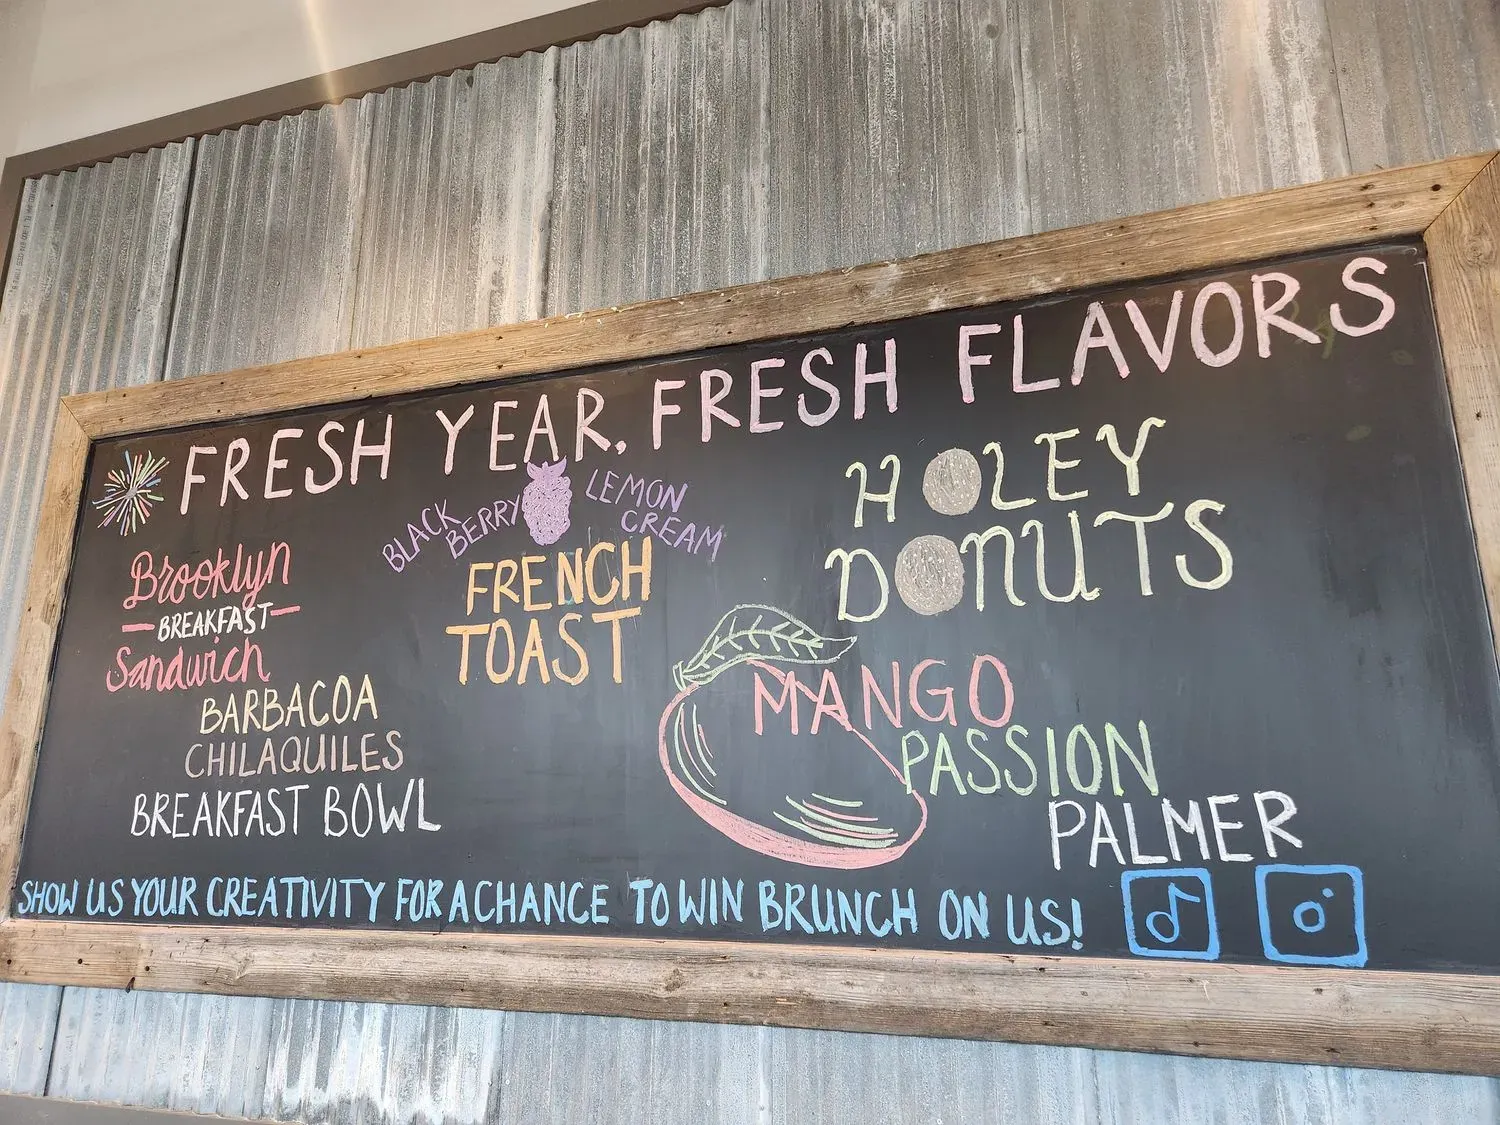 FRESH YEAR, FRESH FLAVORS
Brooklyn
BREAKFAST
Sandwich
BARBACOA
CHILAQUILES
BREAKFAST BOWL
BLACK
BERRY
LEMON
CREAM
FRENCH
TOAST
HOLEY
DONUTS
MANGO
PASSION
PALMER
SHOW US YOUR CREATIVITY FOR A CHANCE TO WIN BRUNCH ON US!